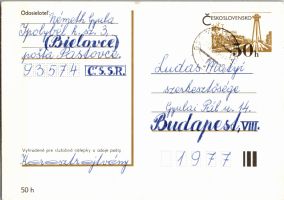 Odosielateľ:
Németh Gyula
Ipolybél h. sz. 3.
(Bielovce)
pošta Pastovce
93574 Č.S.S.R.
ČESKOSLOVENSKO
50 h
Ludas Matyi
szerkesztősége
Gyulai Pál u. 14.
Budapest, VIII.
1977
Vyhradené pre služobné nálepky a údaje pošty
Keresztrejtvény
50 h